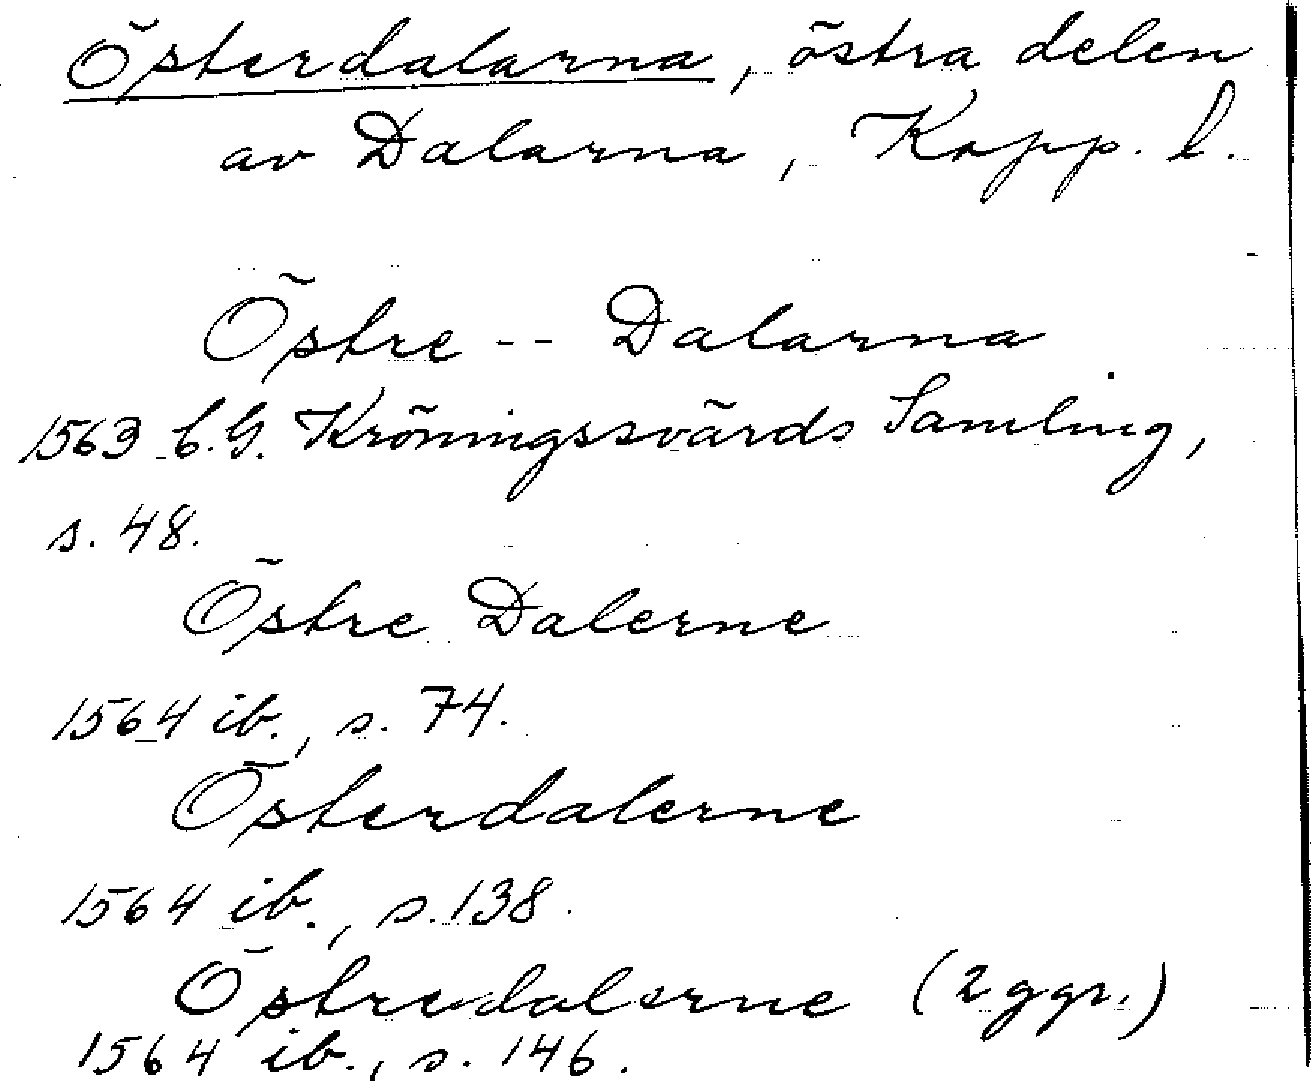 Österdalarna, östra delen
av Dalarna, Kopp. l.
Östre -- Dalarna
1563 C.G. Kröningssvärds Samling,
s. 48.
Östre Dalerne
1564 ib., s. 74.
Österdalerne
1564 ib., s. 138.
Östredalerne (2 ggr.)
1564 ib., s. 146.